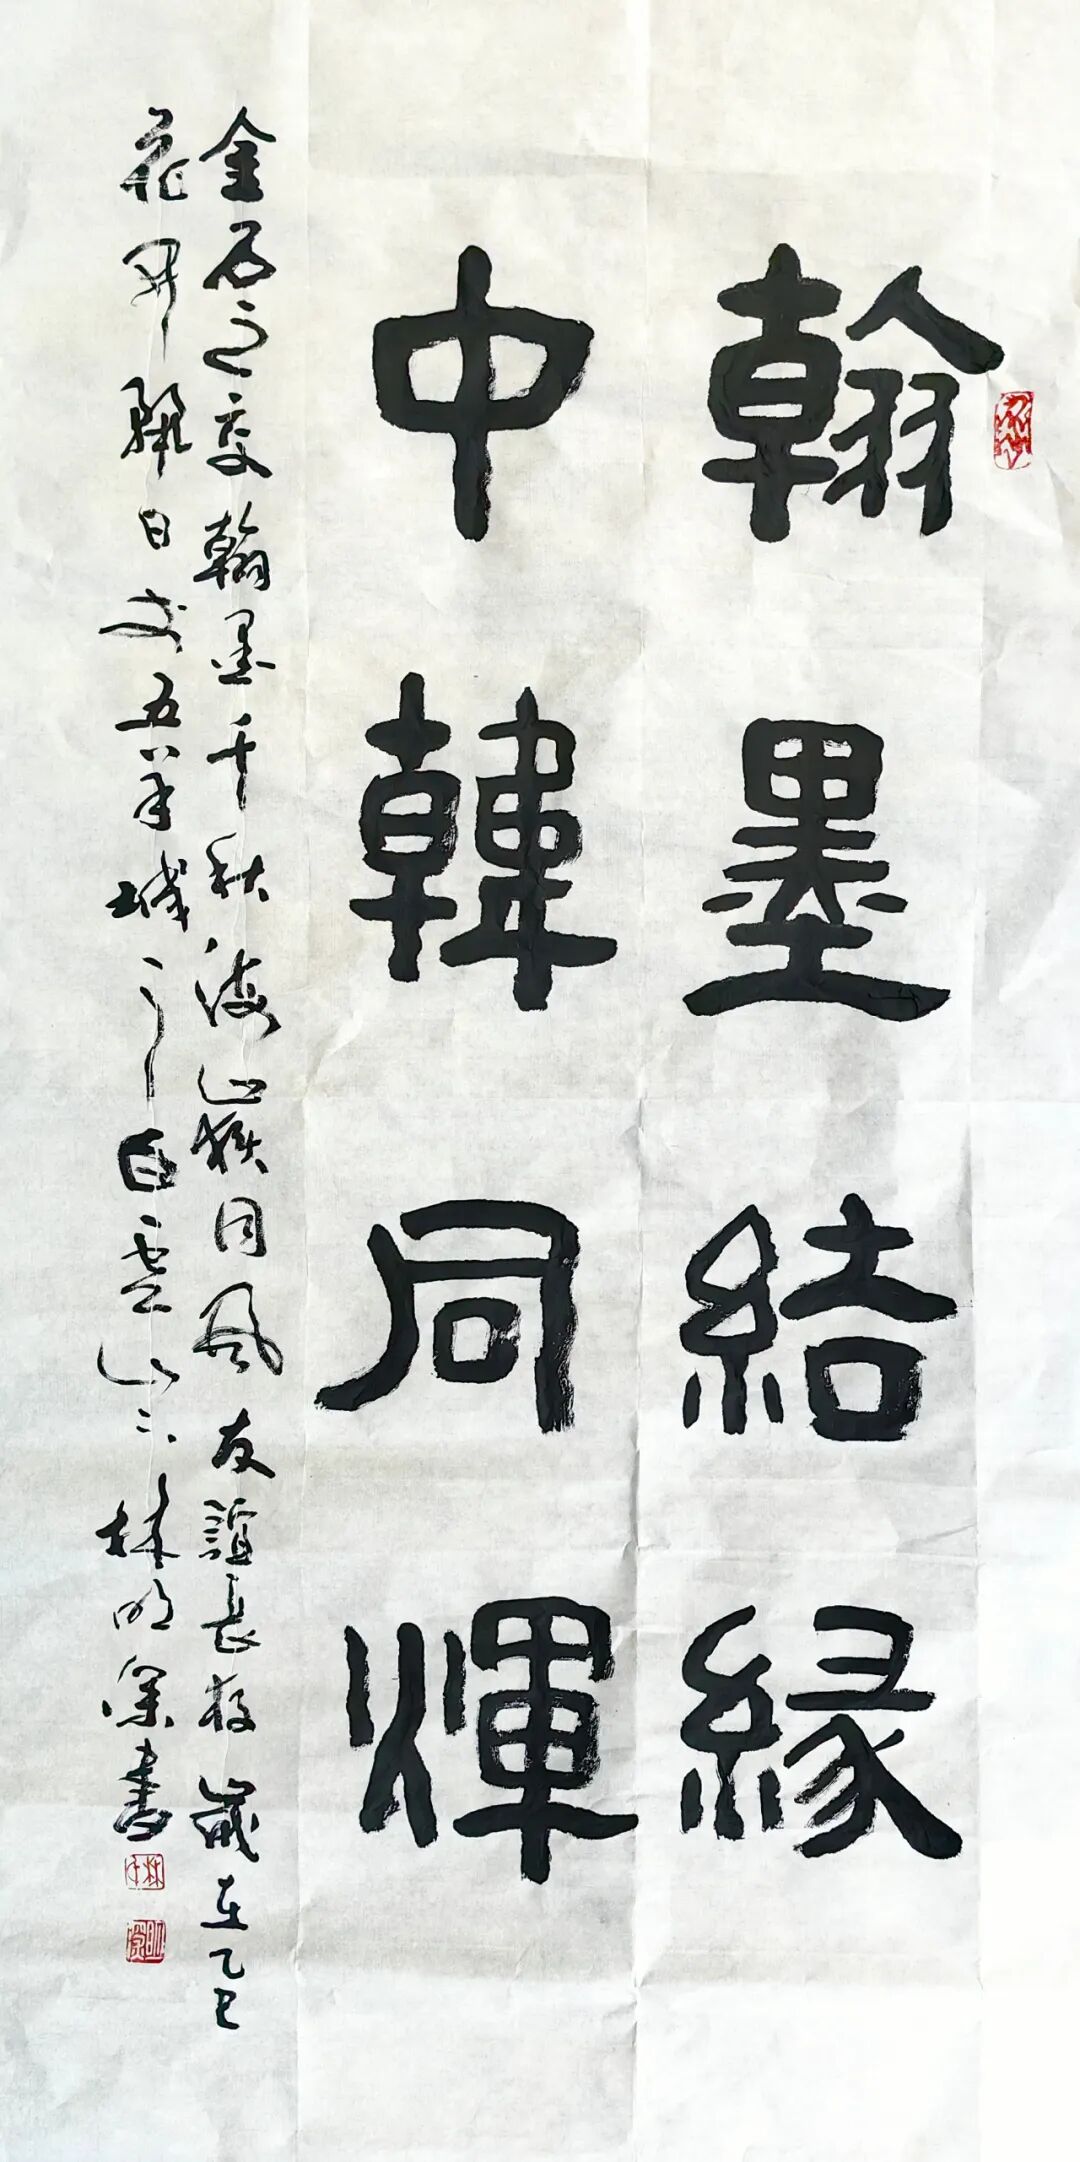 翰墨結緣
中韓同輝
金石之交翰墨千秋海山猴同風友誼長存歲在乙巳
花月日於五羊城之白雲山下林明深書